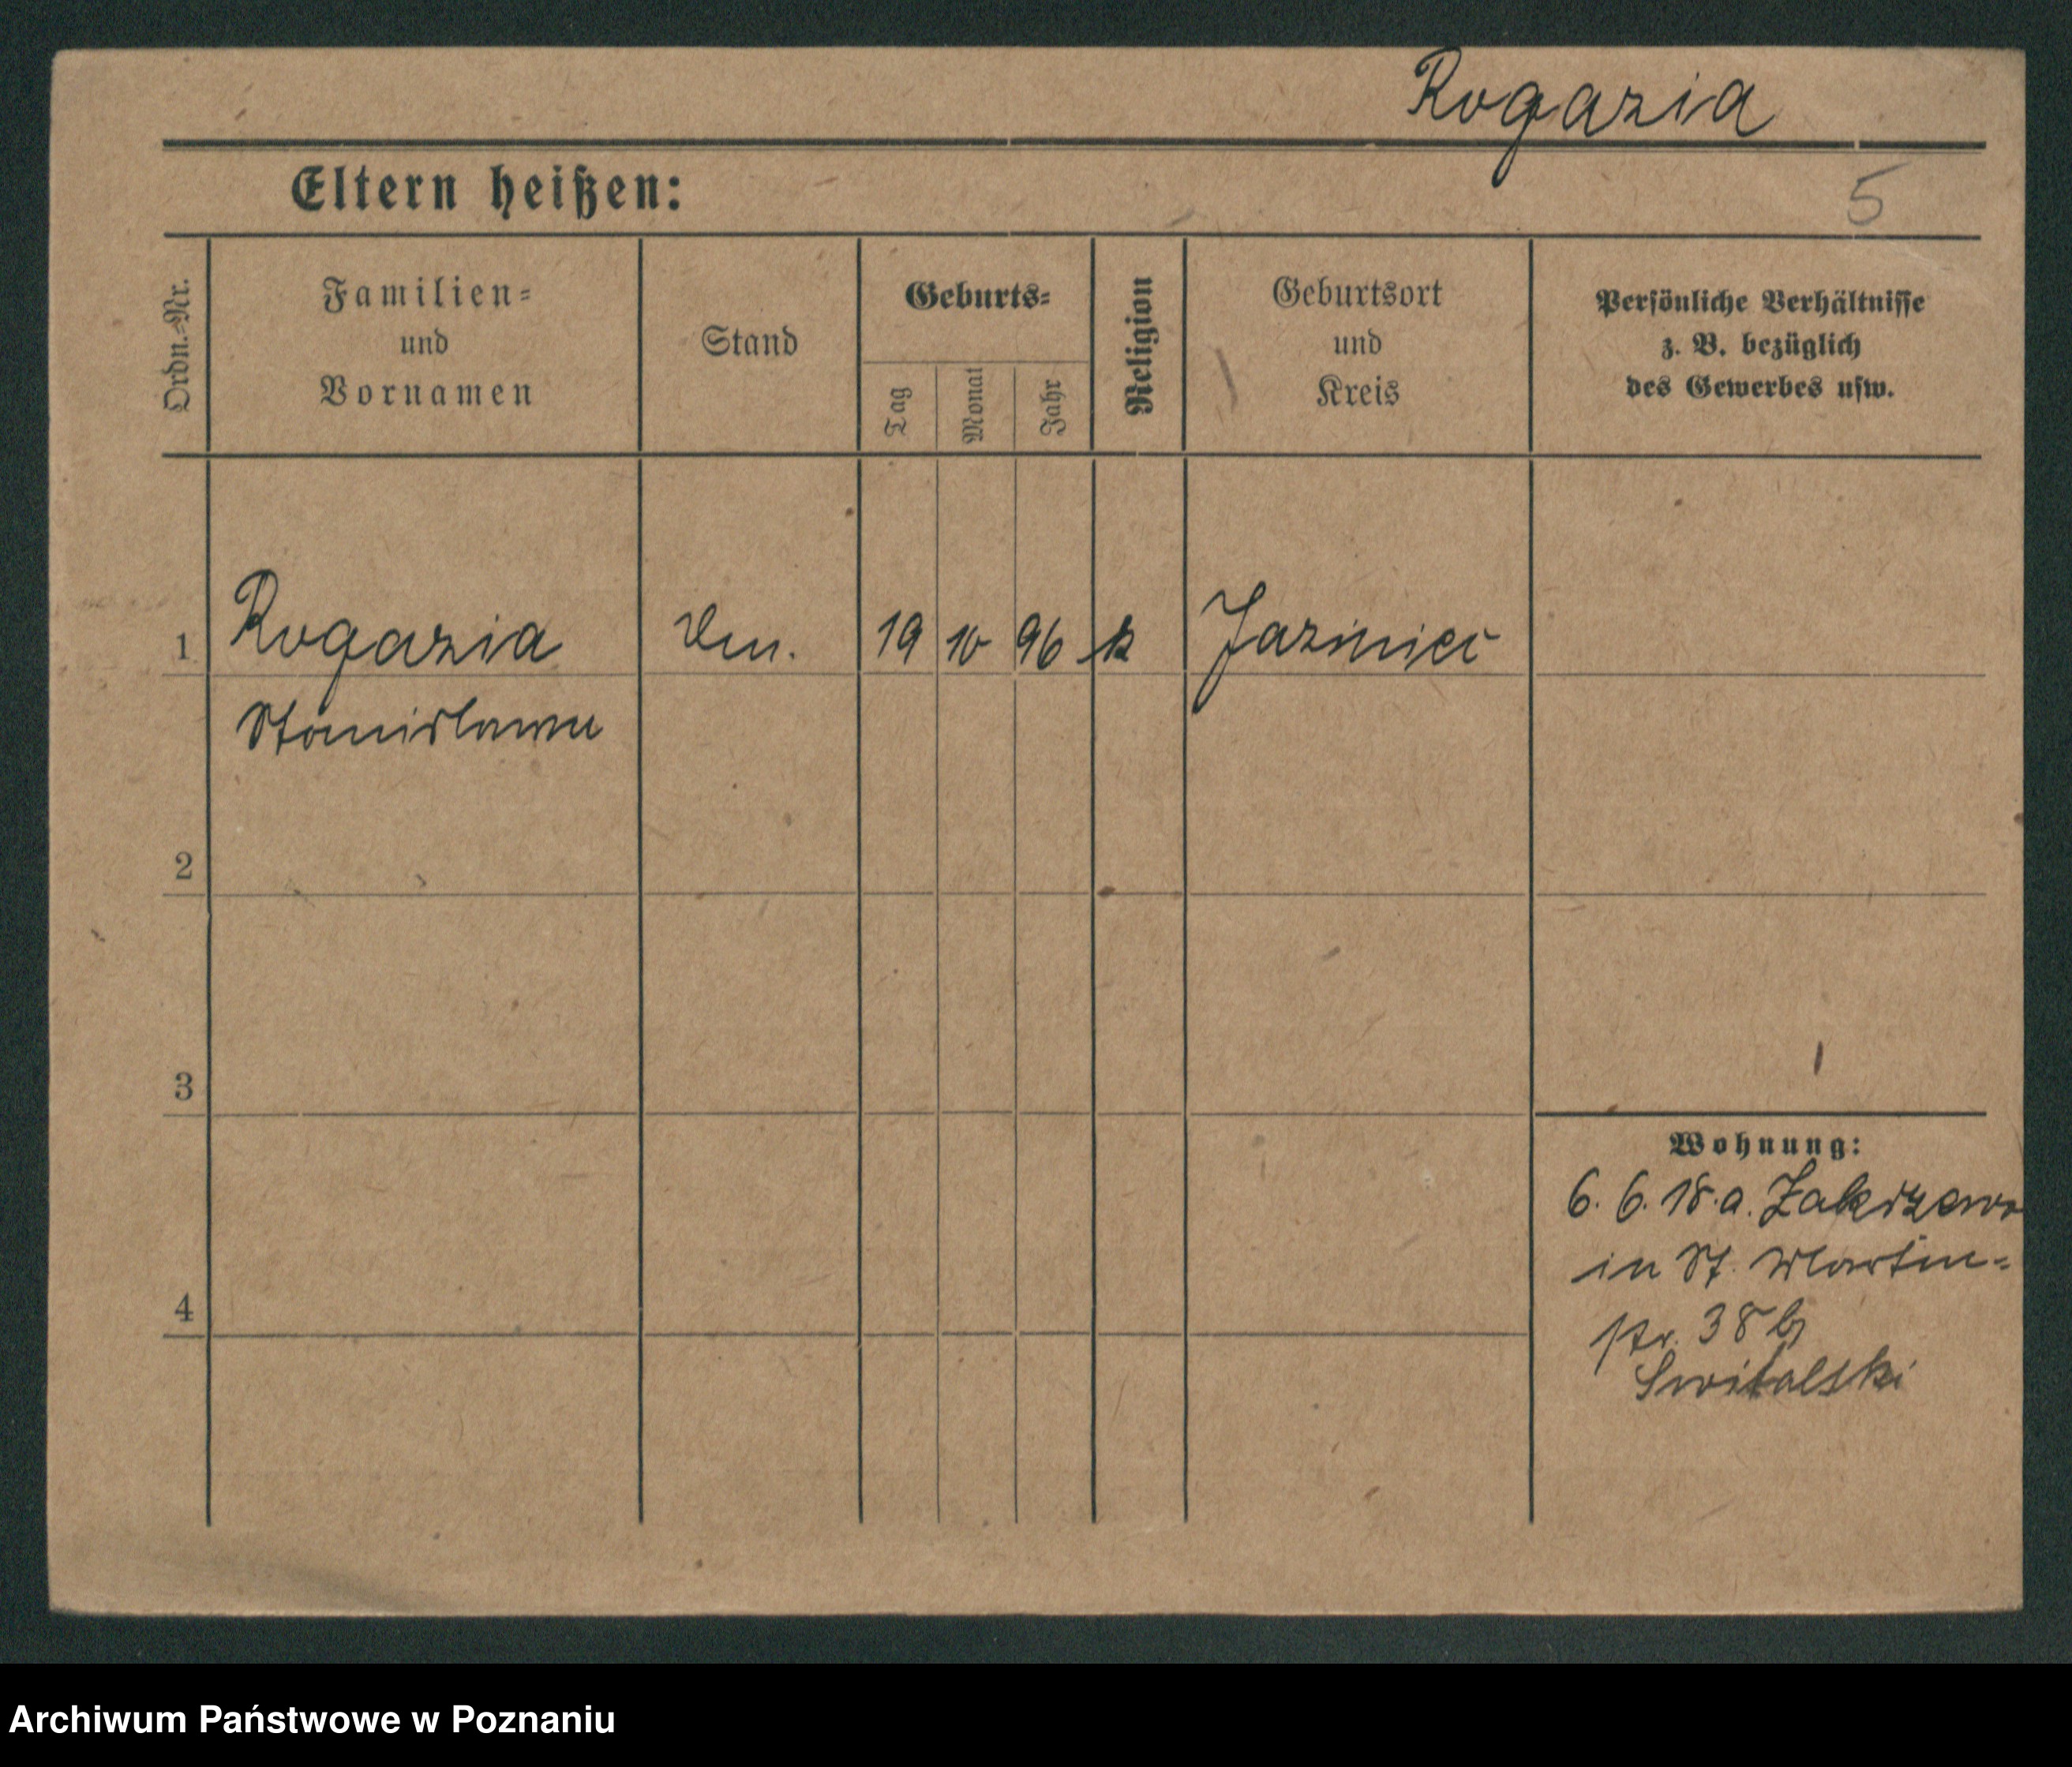 Rogazia
Eltern heißen:
5
Ordn.-Nr.
Familien-
und
Vornamen
Stand
Geburts-
Tag
Monat
Jahr
Religion
Geburtsort
und
Kreis
Persönliche Verhältnisse
z. B. bezüglich
des Gewerbes usw.
1 Rogazia 19 10 96 k
Stanislawa
2
3
4
Wohnung:
6. 6. 18. a. Zakrzewo
in St. Martin-
str. 38 b
Switalski
Archiwum Państwowe w Poznaniu